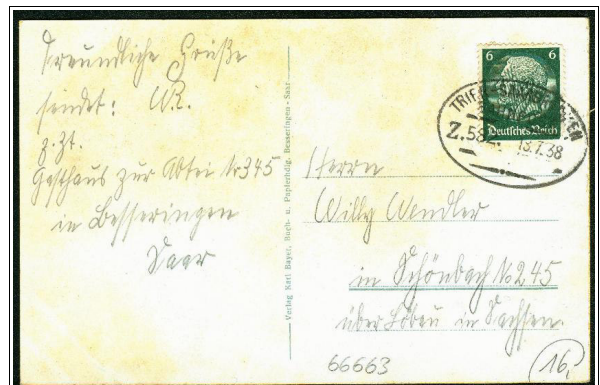 Freundliche Grüße
sendet: W.
z.Zt.
Gasthaus zur Abtei № 345
in Besseringen
Saar
Verlag Karl Bayer, Buch- u. Papierhdlg. Besseringen - Saar
6 6
Deutsches Reich
Z.58
13.7.38
Herrn
Willy Wendler
in Schönbach № 245
über Löbau in Sachsen.
66663
16,-